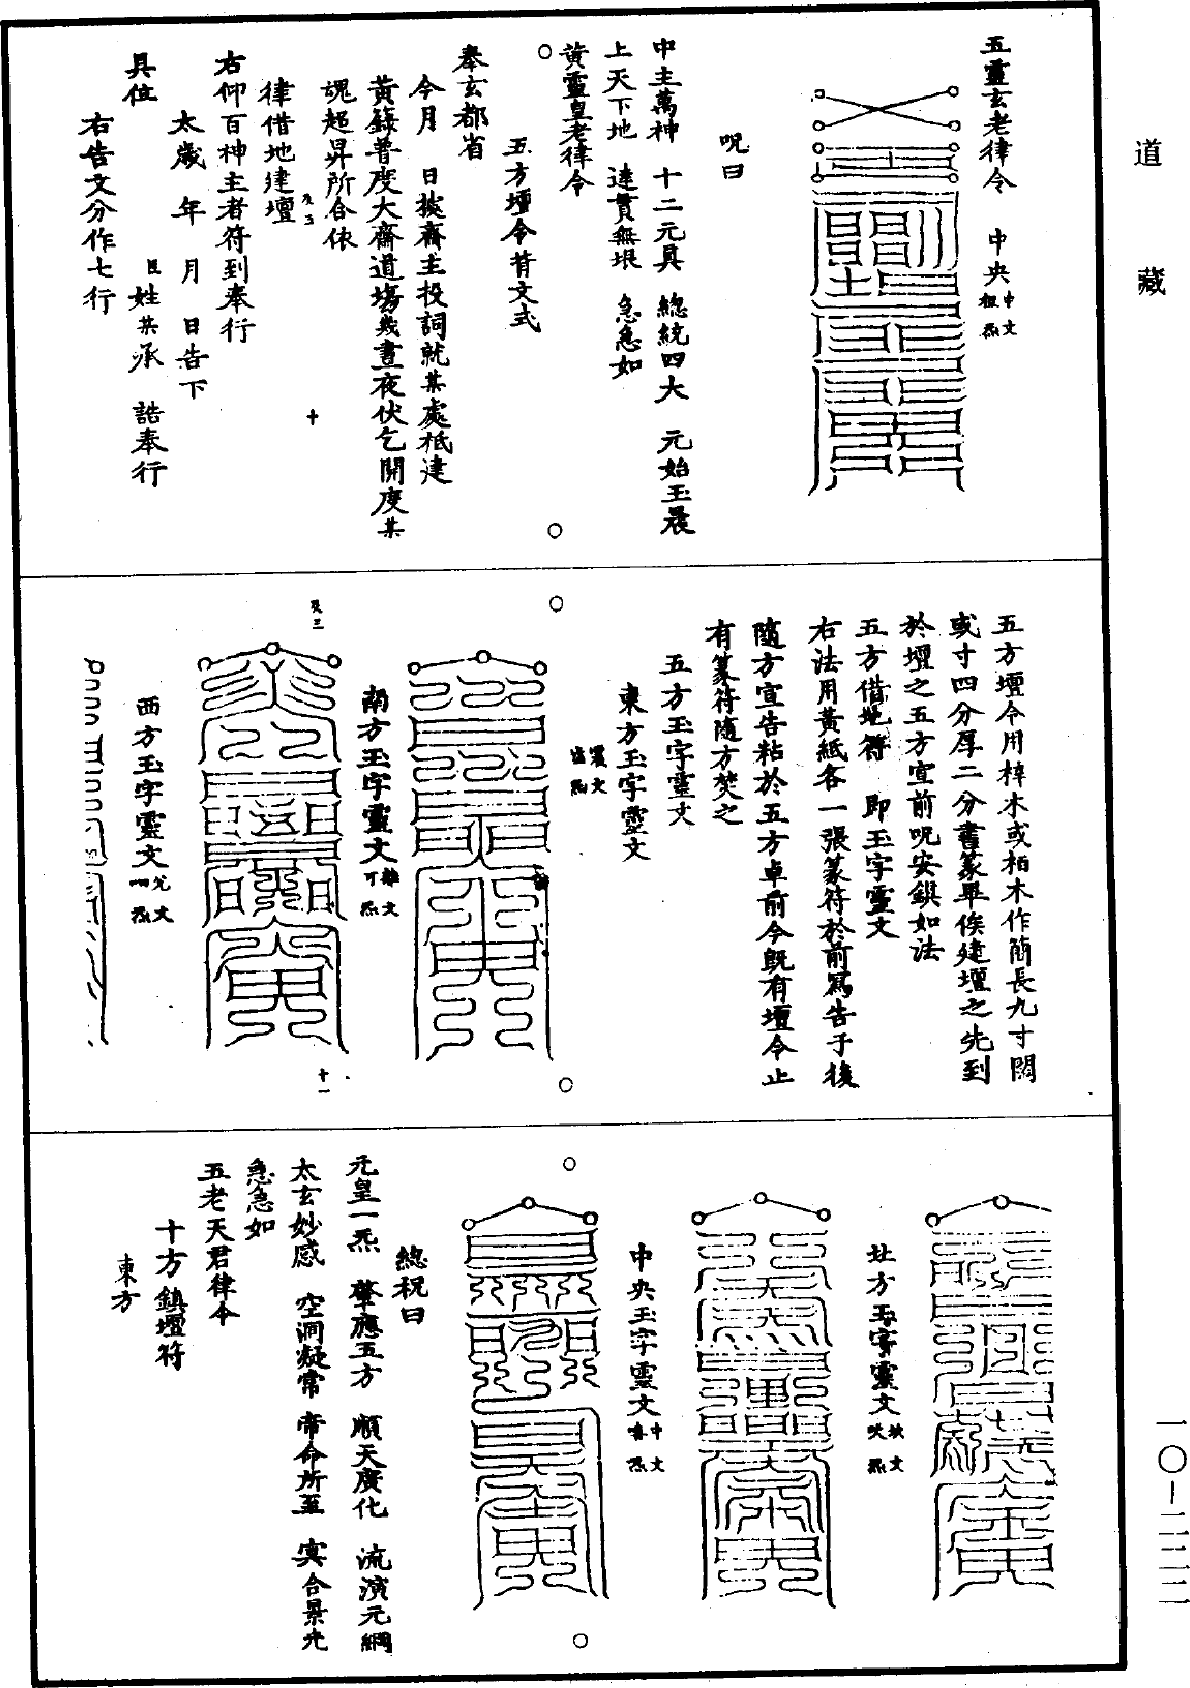 道藏
五靈玄老律令　中央
呪曰
中主萬神　十二元具　總統四大　元始玉晨
上天下地　達貫無垠　急急如
黃靈皇老律令
五方壇令背文式
奉玄都省
今月　日據齋主投詞就某處祗建
黃籙普度大齋道塲幾晝夜伏乞開度某
魂超昇所合依
律借地建壇
右仰百神主者符到奉行
太歲　年　月　日告下
具位　臣姓某承　誥奉行
右告文分作七行
五方壇令用梓木或柏木作簡長九寸闊
或寸四分厚二分書篆畢俟建壇之先到
於壇之五方宣前呪安鎮如法
五方借地符　即玉字靈文
右法用黃紙各一張篆符於前寫告于後
隨方宣告粘於五方卓前今旣有壇令止
有篆符隨方焚之
五方玉字靈文
東方玉字靈文
南方玉字靈文
西方玉字靈文
北方玉字靈文
中央玉字靈文
總祝曰
元皇一炁　肇應五方　順天廣化　流演元綱
太玄妙感　空洞凝常　帝命所至　寞合景光
急急如
五老天君律令
十方鎮壇符
東方
一〇—二二二